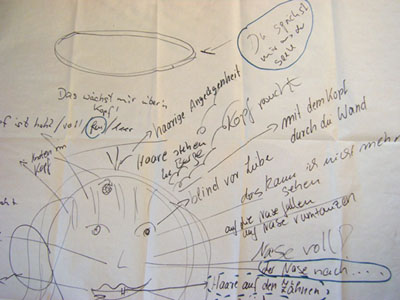 Du sprichst
mir aus der
Seele
Das wächst mir über'n
Kopf!
haarige Angelegenheit
Kopf raucht
Kopf ist hohl / voll / leer
Haare stehen
zu Berge
mit dem Kopf
durch die Wand
blind vor Liebe
das kann ich nicht mehr
sehen
auf die Nase fallen
auf der Nase rumtanzen
Nase voll?
der Nase nach....
Haare auf den Zähnen